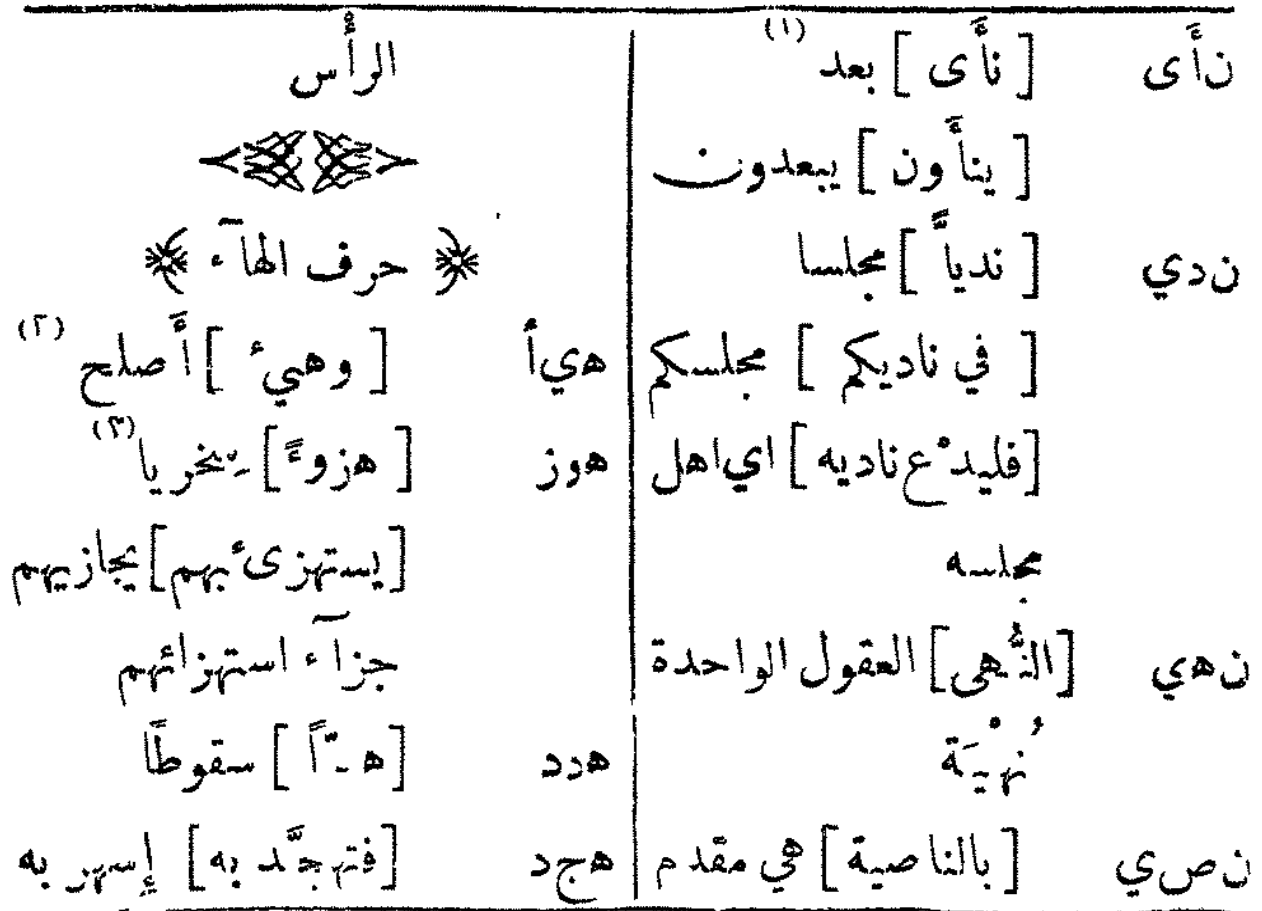 نأى [ نأى ] بعد (١)
[ ينأون ] يبعدون
ندي [ ندياً ] مجلسا
[ في ناديكم ] مجلسكم
[فليدْع ناديه ] اي اهل
مجلسه
نهي [النُّهى] العقول الواحدة
نُهْيَة
نصي [بالناصية] هي مقدم
الرأس
حرف الهآء
هيأ [ وهيء ] أصلح (٢)
هوز [ هزوءً]
(٣)
[يستهزىء بهم] يجازيهم
جزآء استهزائهم
هدد [ ] سقوطًا
هجد [فتهجَّد به] إسهر به